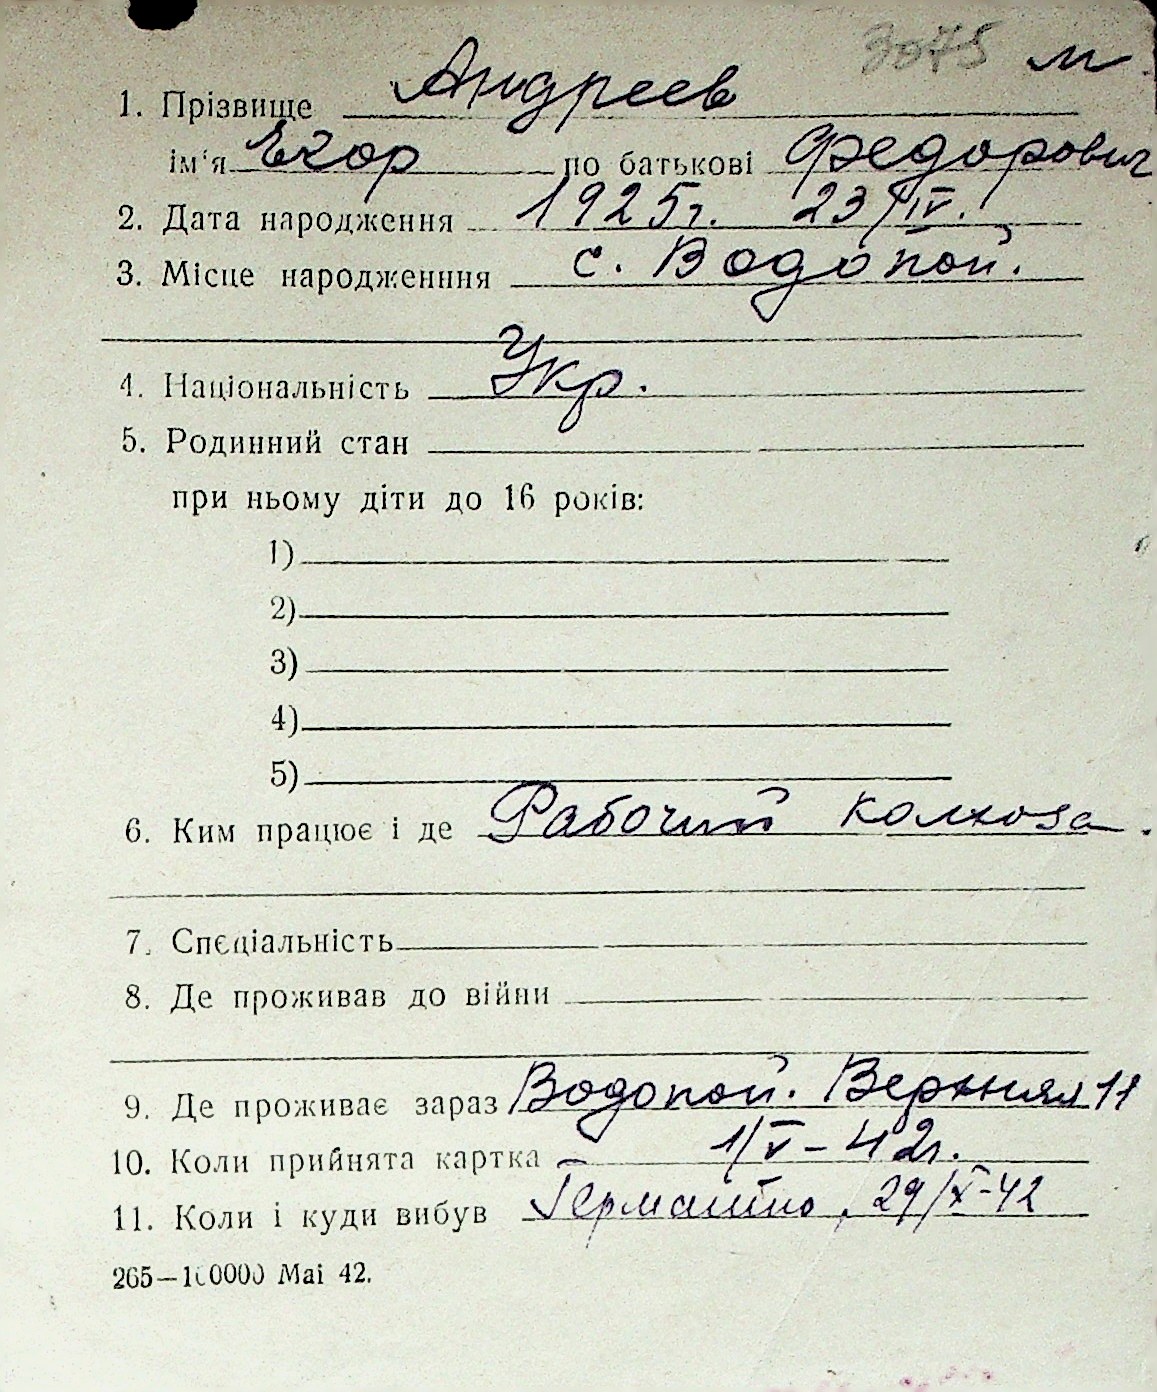 3075 м
1. Прізвище Андреев
ім'я Егор по батькові Федорович
2. Дата народження 1925г. 23/IV.
3. Місце народженння с. Водопой.
4. Національність Укр.
5. Родинний стан
при ньому діти до 16 років:
1)
2)
3)
4)
5)
6. Ким працює і де Рабочий колхоза.
7. Спєціальність
8. Де проживав до війни
9. Де проживає зараз Водопой. Верхняя 11
10. Коли прийнята картка 1/V-42г.
11. Коли і куди вибув Германию, 29/X-42
265—100000 Mai 42.